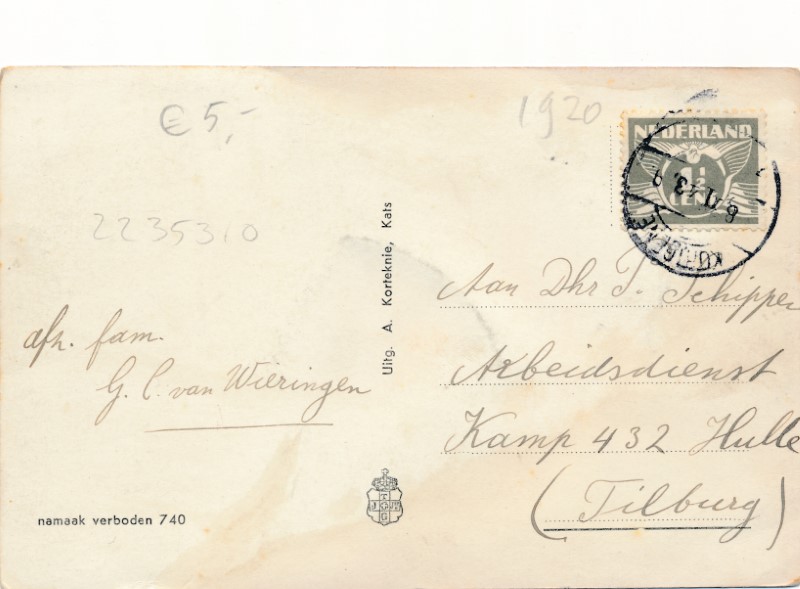 € 5,-
1920
NEDERLAND
1½
CENT
6.11.43.
2235310
Uitg. A. Korteknie, Kats
afz. fam.
G. C. van Wieringen
Aan Dhr
Schipper
Arbeidsdienst
Kamp 432 Hulle
(Tilburg)
namaak verboden 740